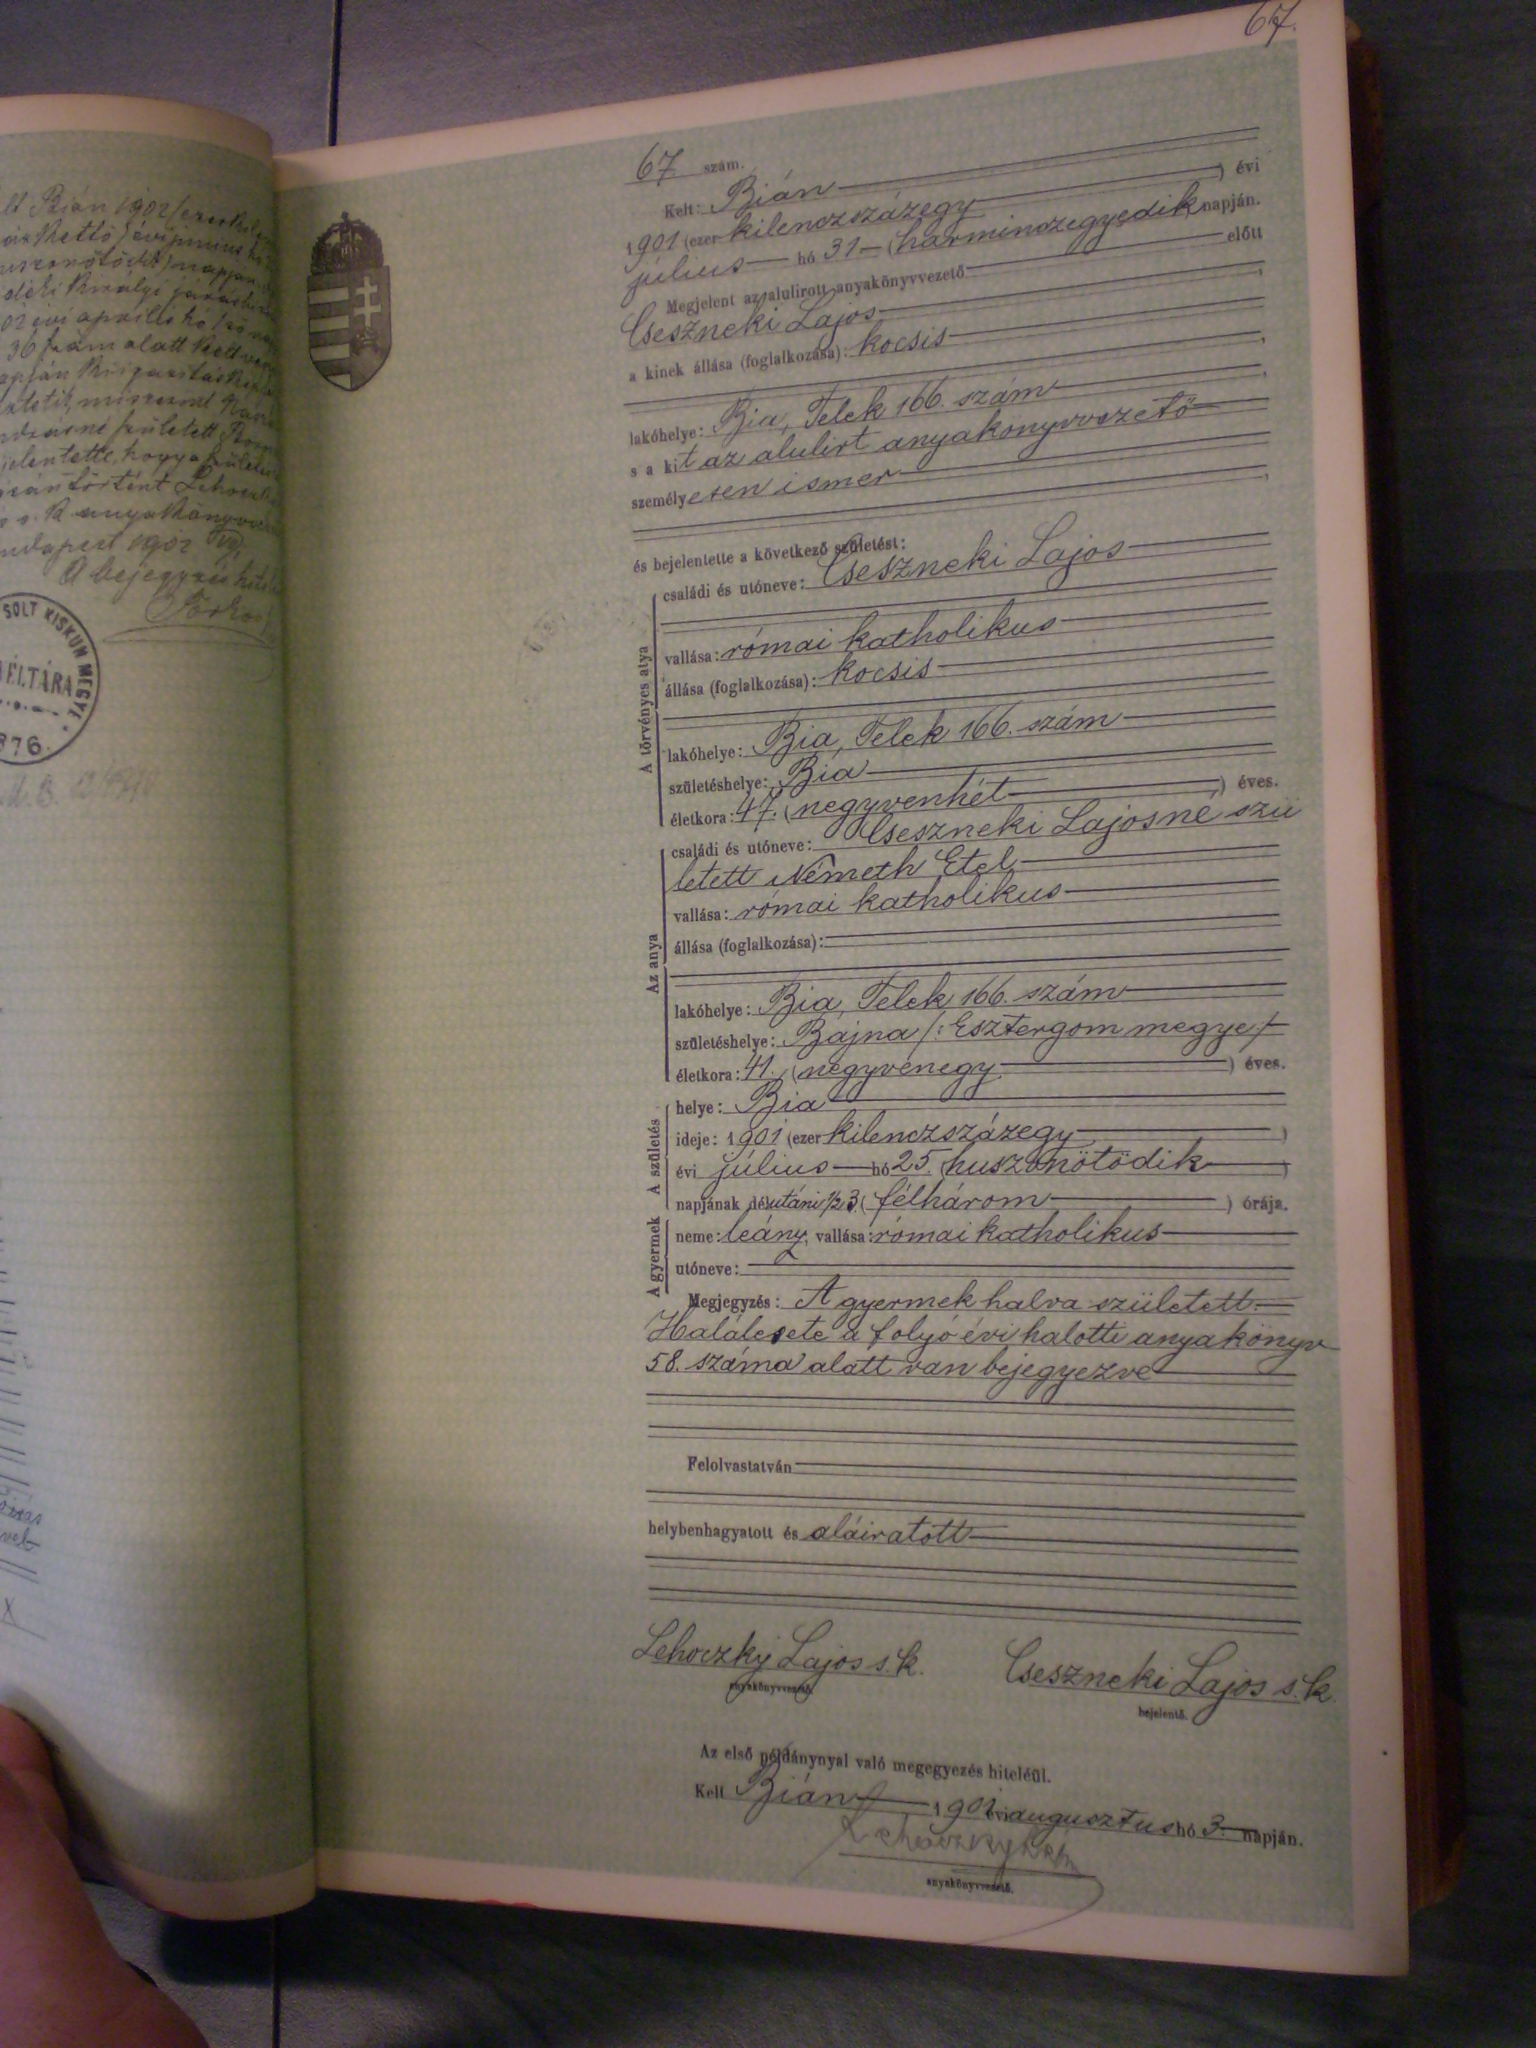 67.
67 szám.
Kelt: Bián
1901 (ezer kilenczszázegy ) évi
július hó 31 (harminczegyedik napján.
Megjelent az alulirott anyakönyvvezető előtt
Cseszneki Lajos
a kinek állása (foglalkozása): kocsis
lakóhelye: Bia, Telek 166. szám
s a kit az alulirt anyakönyvvezető
személyesen ismer
és bejelentette a következő születést:
A törvényes atya
családi és utóneve: Cseszneki Lajos
vallása: római katholikus
állása (foglalkozása): kocsis
lakóhelye: Bia, Telek 166. szám
születéshelye: Bia
életkora: 47. (negyvenhét ) éves.
Az anya
családi és utóneve: Cseszneki Lajosné szü
letett Németh Etel
vallása: római katholikus
állása (foglalkozása):
lakóhelye: Bia, Telek 166. szám
születéshelye: Bajna /: Esztergom megye /
életkora: 41. (negyvenegy ) éves.
A születés
helye: Bia
ideje: 1901 (ezer kilenczszázegy )
évi július hó 25. (huszonötödik )
napjának délutáni 1/2 3. (félhárom ) órája.
A gyermek
neme: leány, vallása: római katholikus
utóneve:
Megjegyzés: A gyermek halva született.
Halálesete a folyó évi halotti anyakönyv
58. száma alatt van bejegyezve
Felolvastatván
helybenhagyatott és aláiratott
Lehoczky Lajos s. k.
anyakönyvvezető.
Cseszneki Lajos s. k.
bejelentő.
Az első példánynyal való megegyezés hiteléül.
Kelt Bián 1901 évi augusztus hó 3. napján.
Lehoczky
anyakönyvvezető.
lt Bián 1902
évi junius
napján
deki királyi
évi április hó
36 szám alatt kelt
apján
született
jelentette, hogy a
történt Lehoczky
s. k. anyakönyv
udapest 1902
A bejegyzés
SOLT KISKUN MEGYE
876.